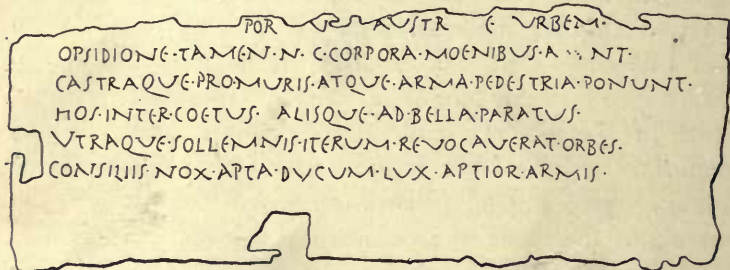 POR AUSTR E URBEM·
OPSIDIONE·TAMEN·N C·CORPORA·MOENIBUS·A NT·
CASTRAQUE·PRO·MURIS·ATQUE·ARMA·PEDESTRIA·PONUNT·
HOS·INTER·COETUS ALISQUE·AD·BELLA·PARATUS·
UTRAQUE·SOLLEMNIS·ITERUM·REVOCAVERAT·ORBES·
CONSILIIS·NOX·APTA·DUCUM·LUX·APTIOR·ARMIS·